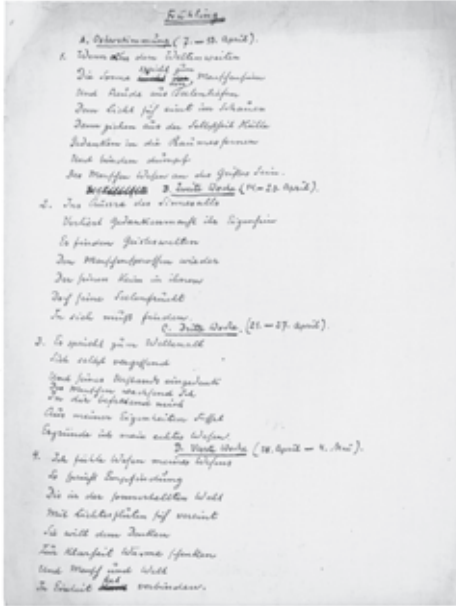 Frühling
A. Osterstimmung (7. – 13. April).
1. Wenn aus den Weltenweiten
Die Sonne spricht zum Menschensinn
Und Freude aus Seelentiefen
Dem Licht sich eint im Schauen
Dann ziehen aus der Selbstheit Hülle
Gedanken in die Raumesfernen
Und binden dumpf
Des Menschen Wesen an des Geistes Sein.
B. Zweite Woche (14. – 20. April).
2. Ins Äussre des Sinnesalls
Verliert Gedankenmacht ihr Eigensein
Es finden Geisteswelten
Den Menschensprossen wieder
Der seinen Keim in ihnen
Doch seine Seelenfrucht
In sich muß finden.
C. Dritte Woche. (21. – 27. April).
3. Es spricht zum Weltenall
Sich selbst vergessend
Und seines Urstands eingedenk
Des Menschen wachsend Ich
In dir befreiend mich
Aus meiner Eigenheiten Fessel
Ergründe ich mein echtes Wesen.
D. Vierte Woche (28. April – 4. Mai).
4. Ich fühle Wesen meines Wesens
So spricht Empfindung
Die in der sonnerhellten Welt
Mit Lichtesfluten sich vereint
Sie will dem Denken
Zur Klarheit Wärme schenken
Und Mensch und Welt
In Einheit fest verbinden.